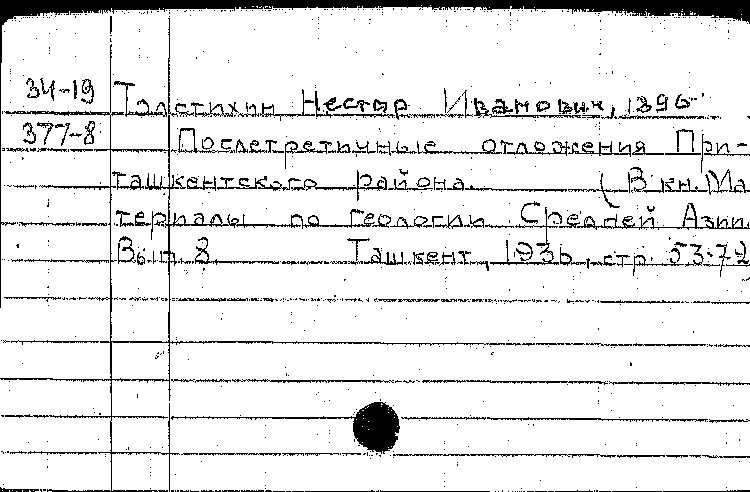 34-19 Толстихин Нестор Иванович, 1896-
377-8 Послетретичные отложения При-
ташкентского района. (В кн. Ма
териалы по геологии Средней Азии.
Вып. 8. Ташкент, 1936, стр. 53-72